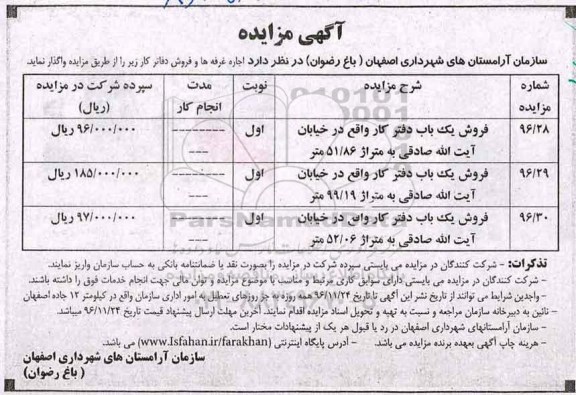 آگهی مزایده
سازمان آرامستان های شهرداری اصفهان ( باغ رضوان) در نظر دارد اجاره غرفه ها و فروش دفاتر کار زیر را از طریق مزایده واگذار نماید.
شماره مزایده | شرح مزایده | نوبت | مدت انجام کار | سپرده شرکت در مزایده (ریال)
۹۶/۲۸ | فروش یک باب دفتر کار واقع در خیابان | اول | --------- | ۹۶/۰۰۰/۰۰۰ ریال
آیت الله صادقی به متراژ ۵۱/۸۶ متر | ---
۹۶/۲۹ | فروش یک باب دفتر کار واقع در خیابان | اول | --------- | ۱۸۵/۰۰۰/۰۰۰ ریال
آیت الله صادقی به متراژ ۹۹/۱۹ متر | ---
۹۶/۳۰ | فروش یک باب دفتر کار واقع در خیابان | اول | --------- | ۹۷/۰۰۰/۰۰۰ ریال
آیت الله صادقی به متراژ ۵۲/۰۶ متر | ---
تذکرات: - شرکت کنندگان در مزایده می بایستی سپرده شرکت در مزایده را بصورت نقد یا ضمانتنامه بانکی به حساب سازمان واریز نمایند.
- شرکت کنندگان در مزایده می بایستی دارای سوابق کاری مرتبط و مناسب با موضوع مزایده و توان مالی جهت انجام خدمات فوق را داشته باشند.
- واجدین شرایط می توانند از تاریخ نشر این آگهی تا تاریخ ۹۶/۱۱/۲۴ همه روزه جز روزهای تعطیل به امور اداری سازمان واقع در کیلومتر ۱۲ جاده اصفهان
- نائین به دبیرخانه سازمان مراجعه و نسبت به تهیه و تحویل اسناد مزایده اقدام نمایند. آخرین مهلت ارسال پیشنهاد قیمت تاریخ ۹۶/۱۱/۲۴ میباشد.
- سازمان آرامستانهای شهرداری اصفهان در رد یا قبول هر یک از پیشنهادات مختار است.
- هزینه چاپ آگهی بعهده برنده مزایده می باشد. - آدرس پایگاه اینترنتی (www.Isfahan.ir/farakhan) می باشد.
سازمان آرامستان های شهرداری اصفهان
( باغ رضوان)
ParsNamadData